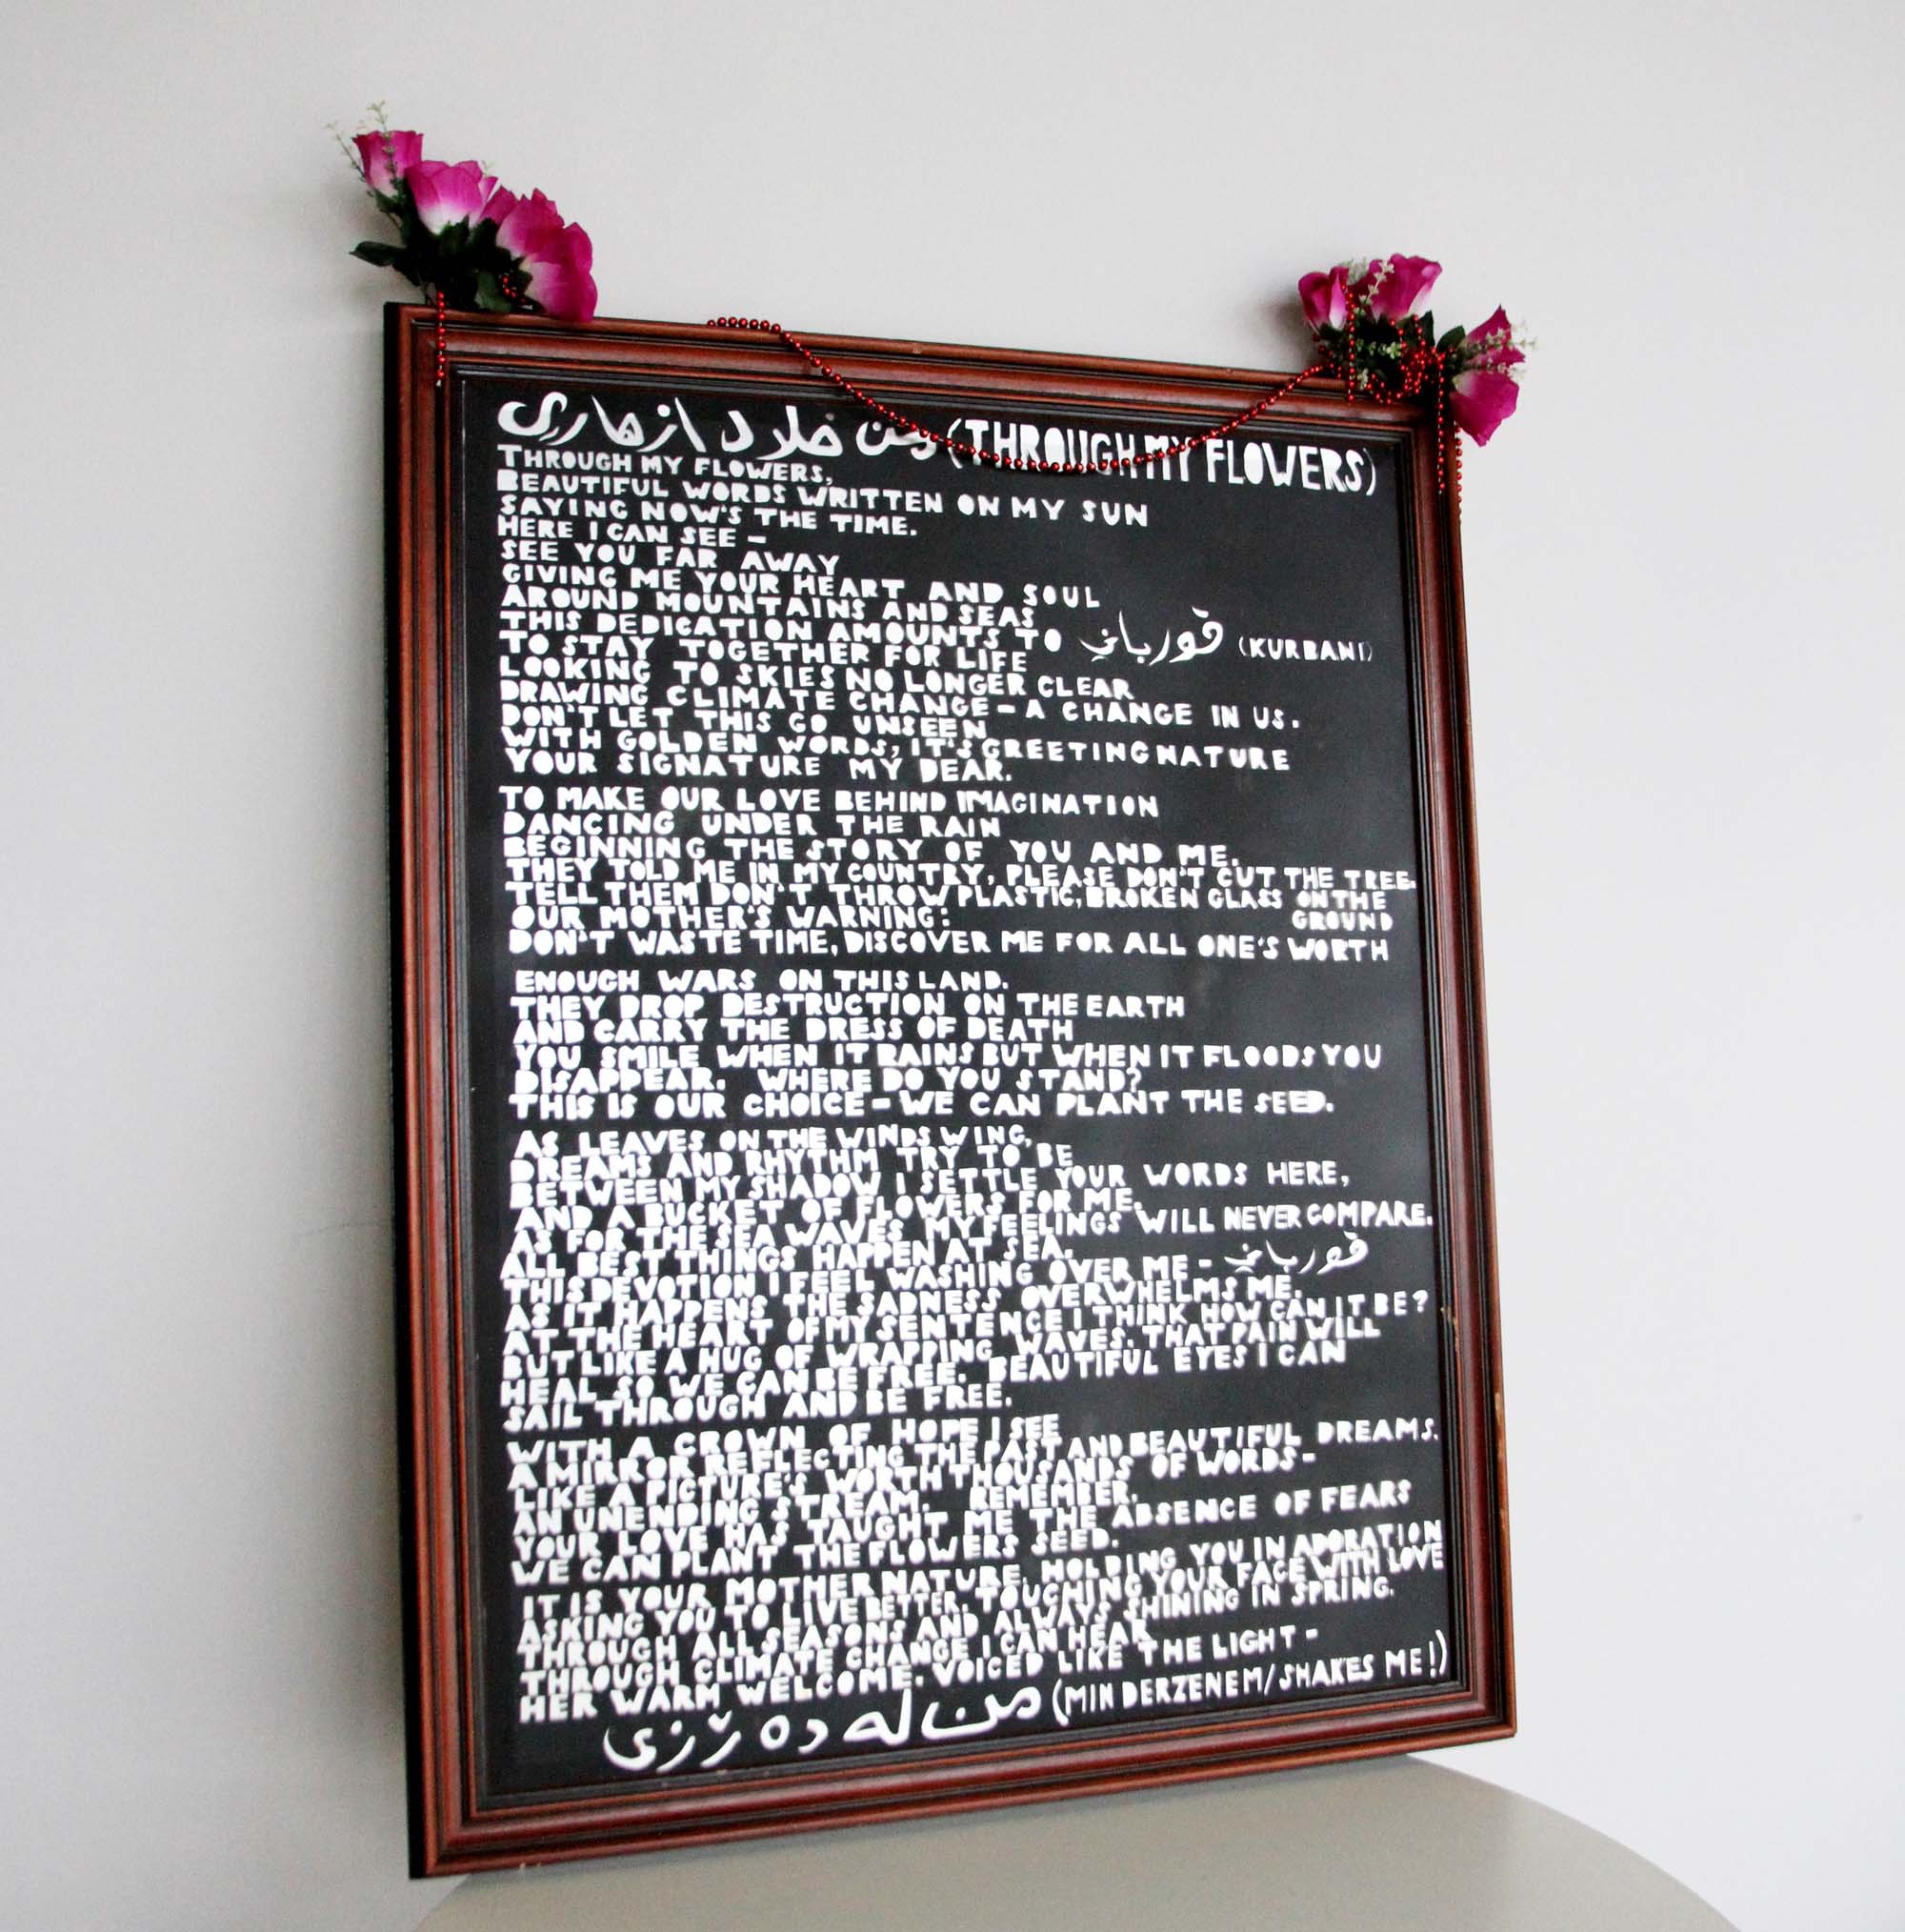 من خلال أزهاري (THROUGH MY FLOWERS)
THROUGH MY FLOWERS,
BEAUTIFUL WORDS WRITTEN ON MY SUN
SAYING NOW'S THE TIME.
HERE I CAN SEE –
SEE YOU FAR AWAY
GIVING ME YOUR HEART AND SOUL
AROUND MOUNTAINS AND SEAS
THIS DEDICATION AMOUNTS TO قورباني (KURBANI)
TO STAY TOGETHER FOR LIFE
LOOKING TO SKIES NO LONGER CLEAR
DRAWING CLIMATE CHANGE – A CHANGE IN US.
DON'T LET THIS GO UNSEEN
WITH GOLDEN WORDS, IT'S GREETING NATURE
YOUR SIGNATURE MY DEAR.
TO MAKE OUR LOVE BEHIND IMAGINATION
DANCING UNDER THE RAIN
BEGINNING THE STORY OF YOU AND ME.
THEY TOLD ME IN MY COUNTRY, PLEASE DON'T CUT THE TREE.
TELL THEM DON'T THROW PLASTIC, BROKEN GLASS ON THE
GROUND
OUR MOTHER'S WARNING:
DON'T WASTE TIME, DISCOVER ME FOR ALL ONE'S WORTH
ENOUGH WARS ON THIS LAND.
THEY DROP DESTRUCTION ON THE EARTH
AND CARRY THE DRESS OF DEATH
YOU SMILE WHEN IT RAINS BUT WHEN IT FLOODS YOU
DISAPPEAR. WHERE DO YOU STAND?
THIS IS OUR CHOICE – WE CAN PLANT THE SEED.
AS LEAVES ON THE WINDS WING,
DREAMS AND RHYTHM TRY TO BE
BETWEEN MY SHADOW I SETTLE YOUR WORDS HERE,
AND A BUCKET OF FLOWERS FOR ME.
AS FOR THE SEA WAVES MY FEELINGS WILL NEVER COMPARE.
ALL BEST THINGS HAPPEN AT SEA.
THIS DEVOTION I FEEL WASHING OVER ME - قورباني
AS IT HAPPENS THE SADNESS OVERWHELMS ME.
AT THE HEART OF MY SENTENCE I THINK HOW CAN IT BE?
BUT LIKE A HUG OF WRAPPING WAVES. THAT PAIN WILL
HEAL SO WE CAN BE FREE. BEAUTIFUL EYES I CAN
SAIL THROUGH AND BE FREE.
WITH A CROWN OF HOPE I SEE
A MIRROR REFLECTING THE PAST AND BEAUTIFUL DREAMS.
LIKE A PICTURE'S WORTH THOUSANDS OF WORDS -
AN UNENDING STREAM. REMEMBER,
YOUR LOVE HAS TAUGHT ME THE ABSENCE OF FEARS
WE CAN PLANT THE FLOWERS SEED.
IT IS YOUR MOTHER NATURE, HOLDING YOU IN ADORATION
ASKING YOU TO LIVE BETTER, TOUCHING YOUR FACE WITH LOVE
THROUGH ALL SEASONS AND ALWAYS SHINING IN SPRING.
THROUGH CLIMATE CHANGE I CAN HEAR
HER WARM WELCOME. VOICED LIKE THE LIGHT -
من له ده رزى (MIN DERZENEM/SHAKES ME!)